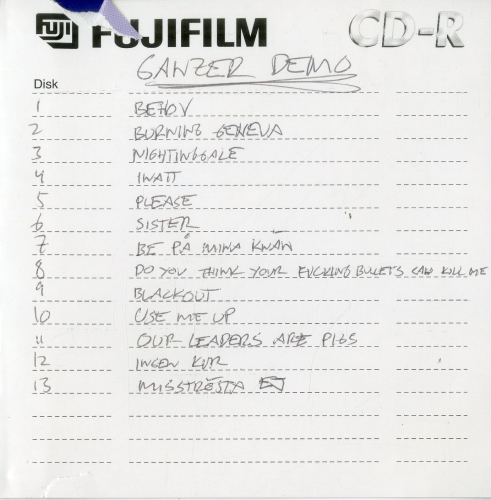 FUJI FUJIFILM CD-R
GANZER DEMO
Disk
1 BEHOV
2 BURNING GENEVA
3 NIGHTINGGALE
4 INATT
5 PLEASE
6 SISTER
7 BE PÅ MINA KNÄN
8 DO YOU THINK YOUR FUCKING BULLETS CAN KILL ME
9 BLACKOUT
10 USE ME UP
11 OUR LEADERS ARE PIGS
12 INGEN KUR
13 MISSTRÖSTA EJ